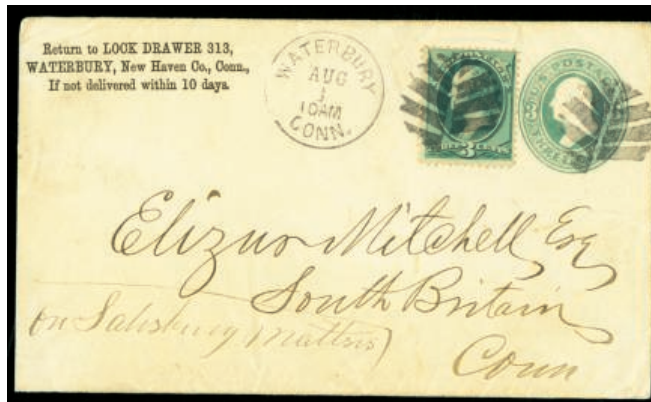 Return to LOCK DRAWER 313,
WATERBURY, New Haven Co., Conn.,
If not delivered within 10 days.
WATERBURY
AUG
1
10AM
CONN.
3 CENTS
U.S. POSTAGE
THREE
Elizur Mitchell Esq
South Britain
Conn
on Salisbury Matters